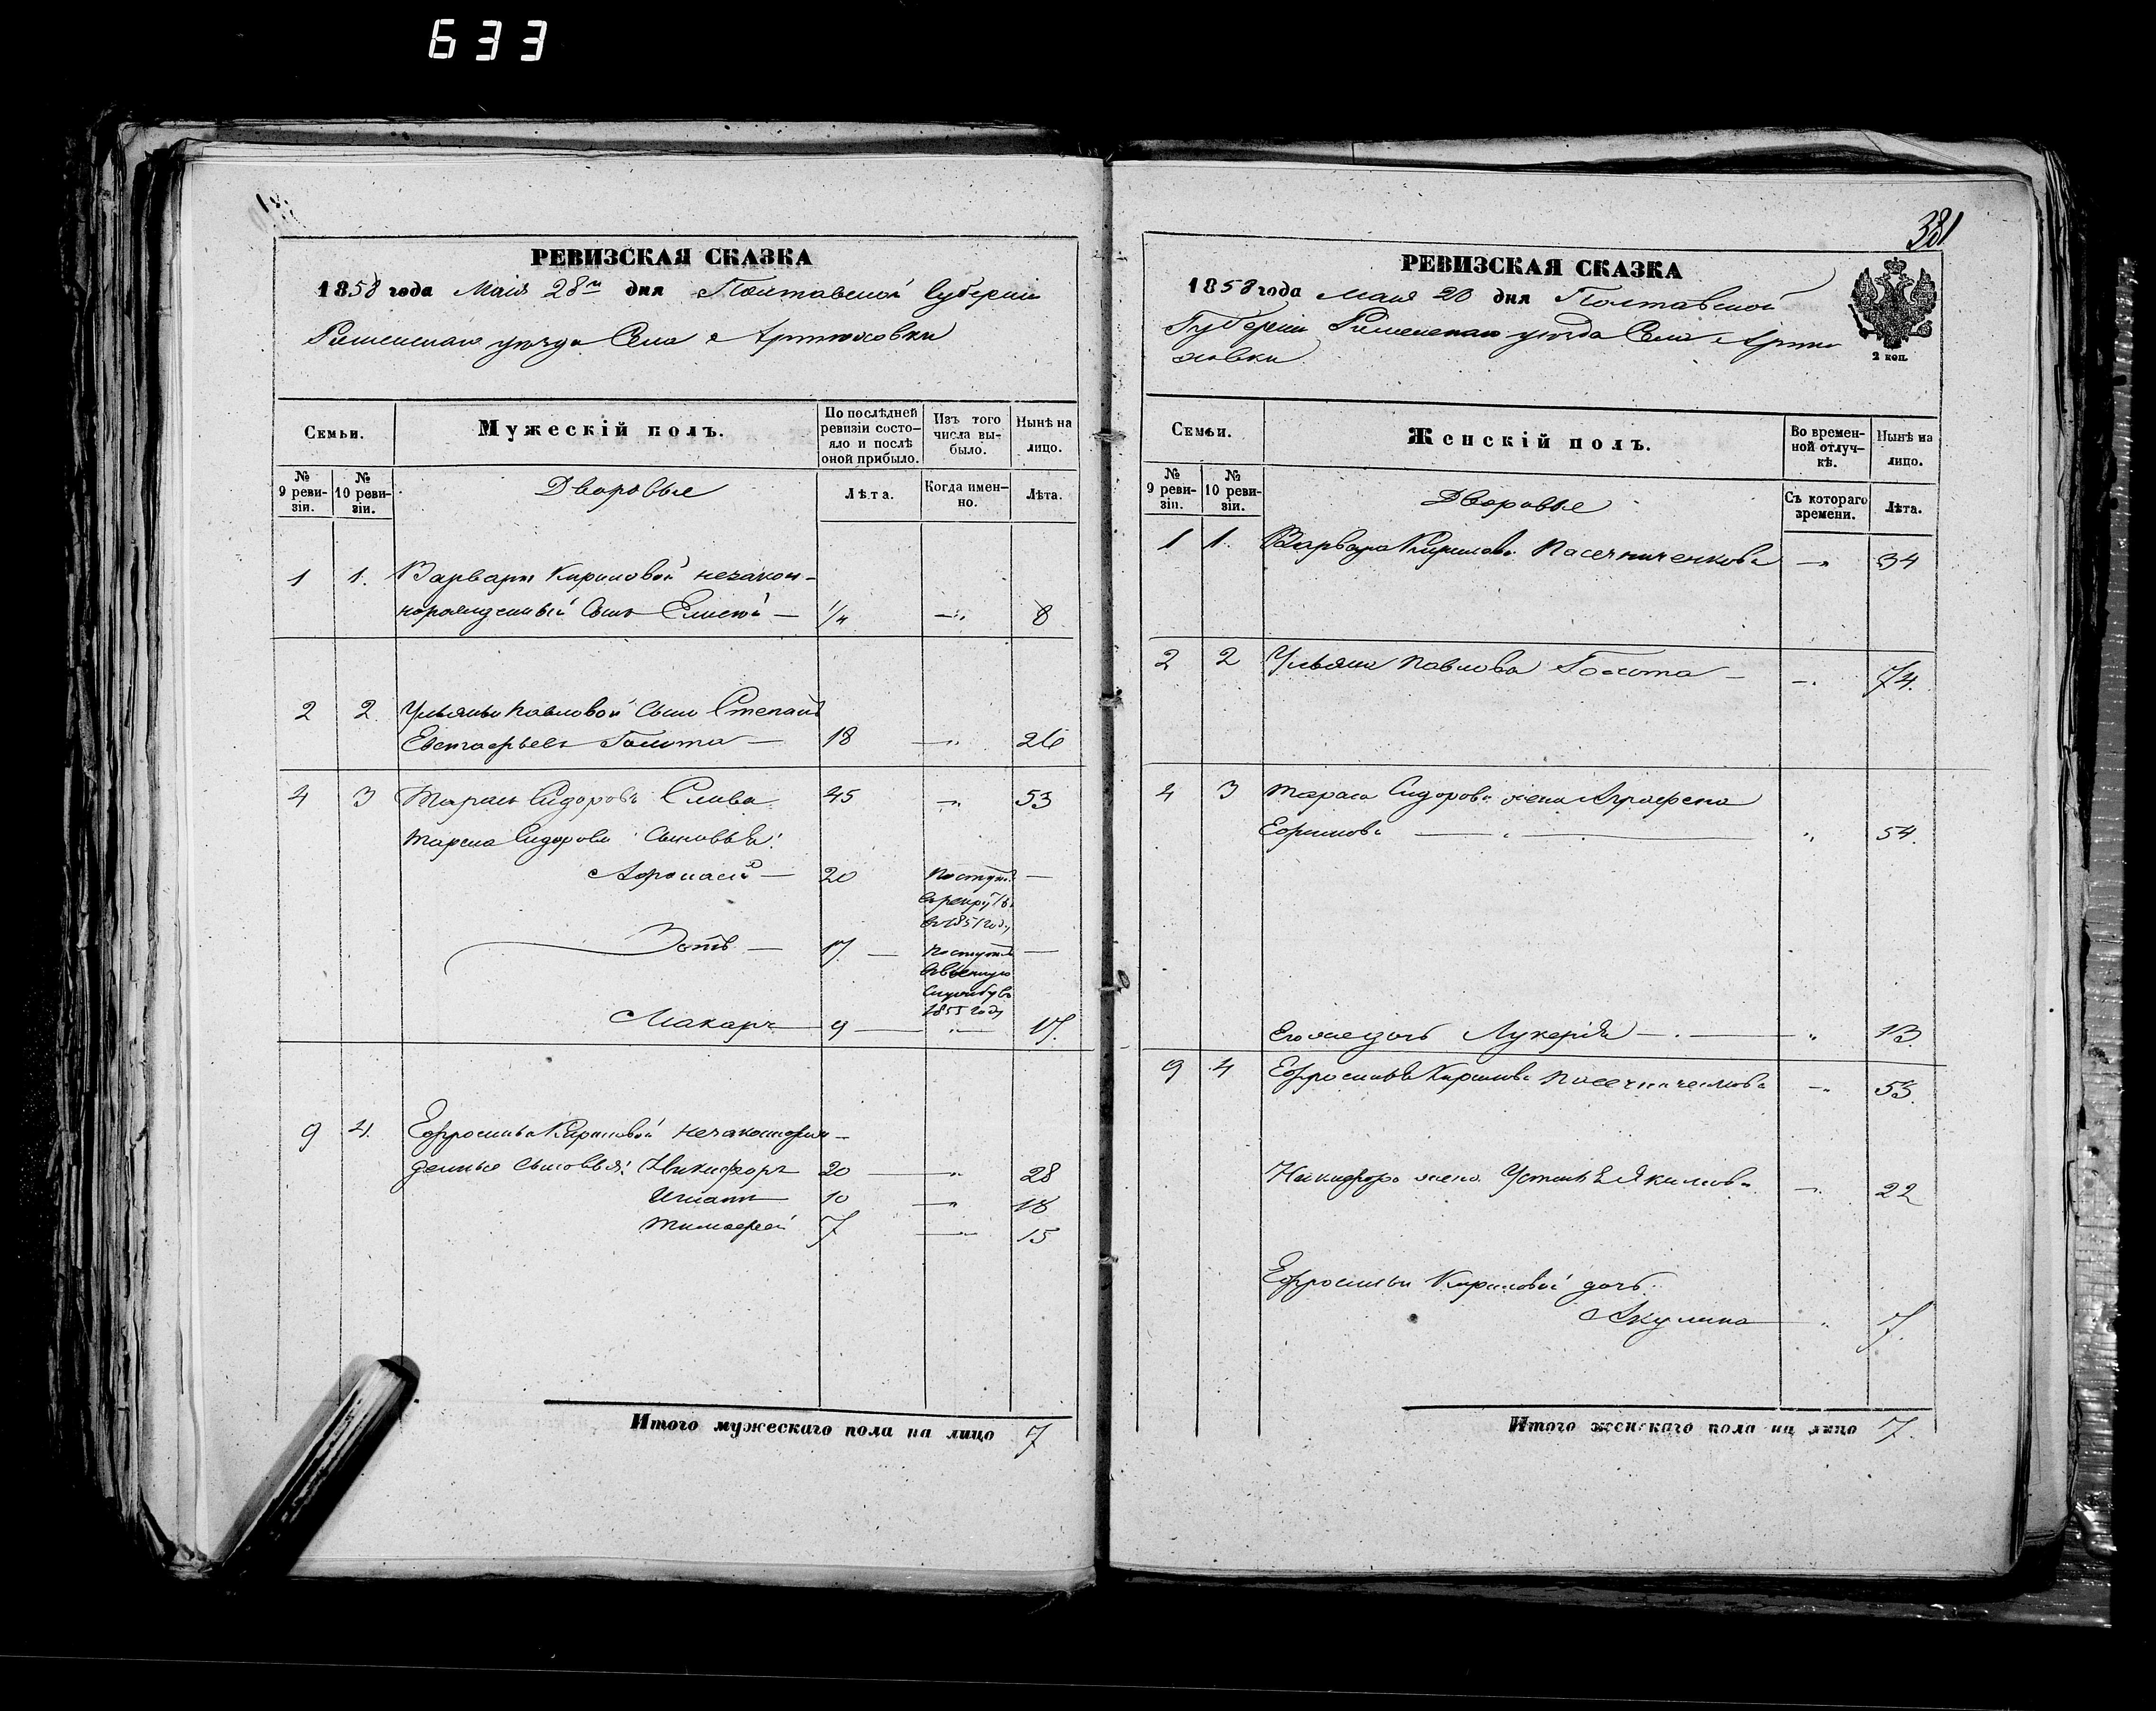 633
РЕВИЗСКАЯ СКАЗКА
1858 года Маія 28го дня Полтавской Губерніи
Роменскаго уѣзда Села Артюховки
Семьи.
Мужескій полъ.
По послѣдней ревизіи состояло и послѣ оной прибыло.
Изъ того числа выбыло.
Нынѣ на лицо.
№ 9 ревизіи.
№ 10 ревизіи.
Дворовые
Лѣта.
Когда именно.
Лѣта.
1 1. Варвары Кириловой незакон-
норожденный Сынъ Елисей — 1/4 — " 8
2 2 Ульяны Павловой Сынъ Степанъ
Евстафьевъ Голота — 18 — " 26
4 3 Тарасъ Сидоровъ Слива 45 — " 53
Тараса Сидорова Сыновья:
Афонасій — 20 Поступ. —
в рекруты
въ 1851 году
Зотъ — 17 — Поступил —
в военную
Службу въ
1855 году
Макаръ 9 — " 17.
9 4. Ефросиньи Кириловой незаконорож-
денные Сыновья: Никифоръ 20 — " 28
Игнатъ 10 — " 18
Тимофей 7 — " 15
Итого мужескаго пола на лицо 7
381
РЕВИЗСКАЯ СКАЗКА
1858 года Маія 28 дня Полтавской
Губерніи Роменскаго уѣзда Села Артю
ховки
2 коп.
Семьи.
Женскій полъ.
Во временной отлучкѣ.
Нынѣ на лицо.
№ 9 ревизіи.
№ 10 ревизіи.
Дворовые
Съ котораго времени.
Лѣта.
1 1. Варвара Кирилова Пасечниченкова — " 34
2 2 Ульяна Павлова Голота — " 74.
4 3 Тараса Сидорова жена Аграфена
Ефимова — " 54.
Его же дочь Лукерія — " 13.
9 4 Ефросинья Кирилова Пасечниченкова — " 53.
Никифора жена Устинья Якимова — " 22
Ефросиньи Кириловой дочь
Акулина " 7.
Итого женскаго пола на лицо 7.